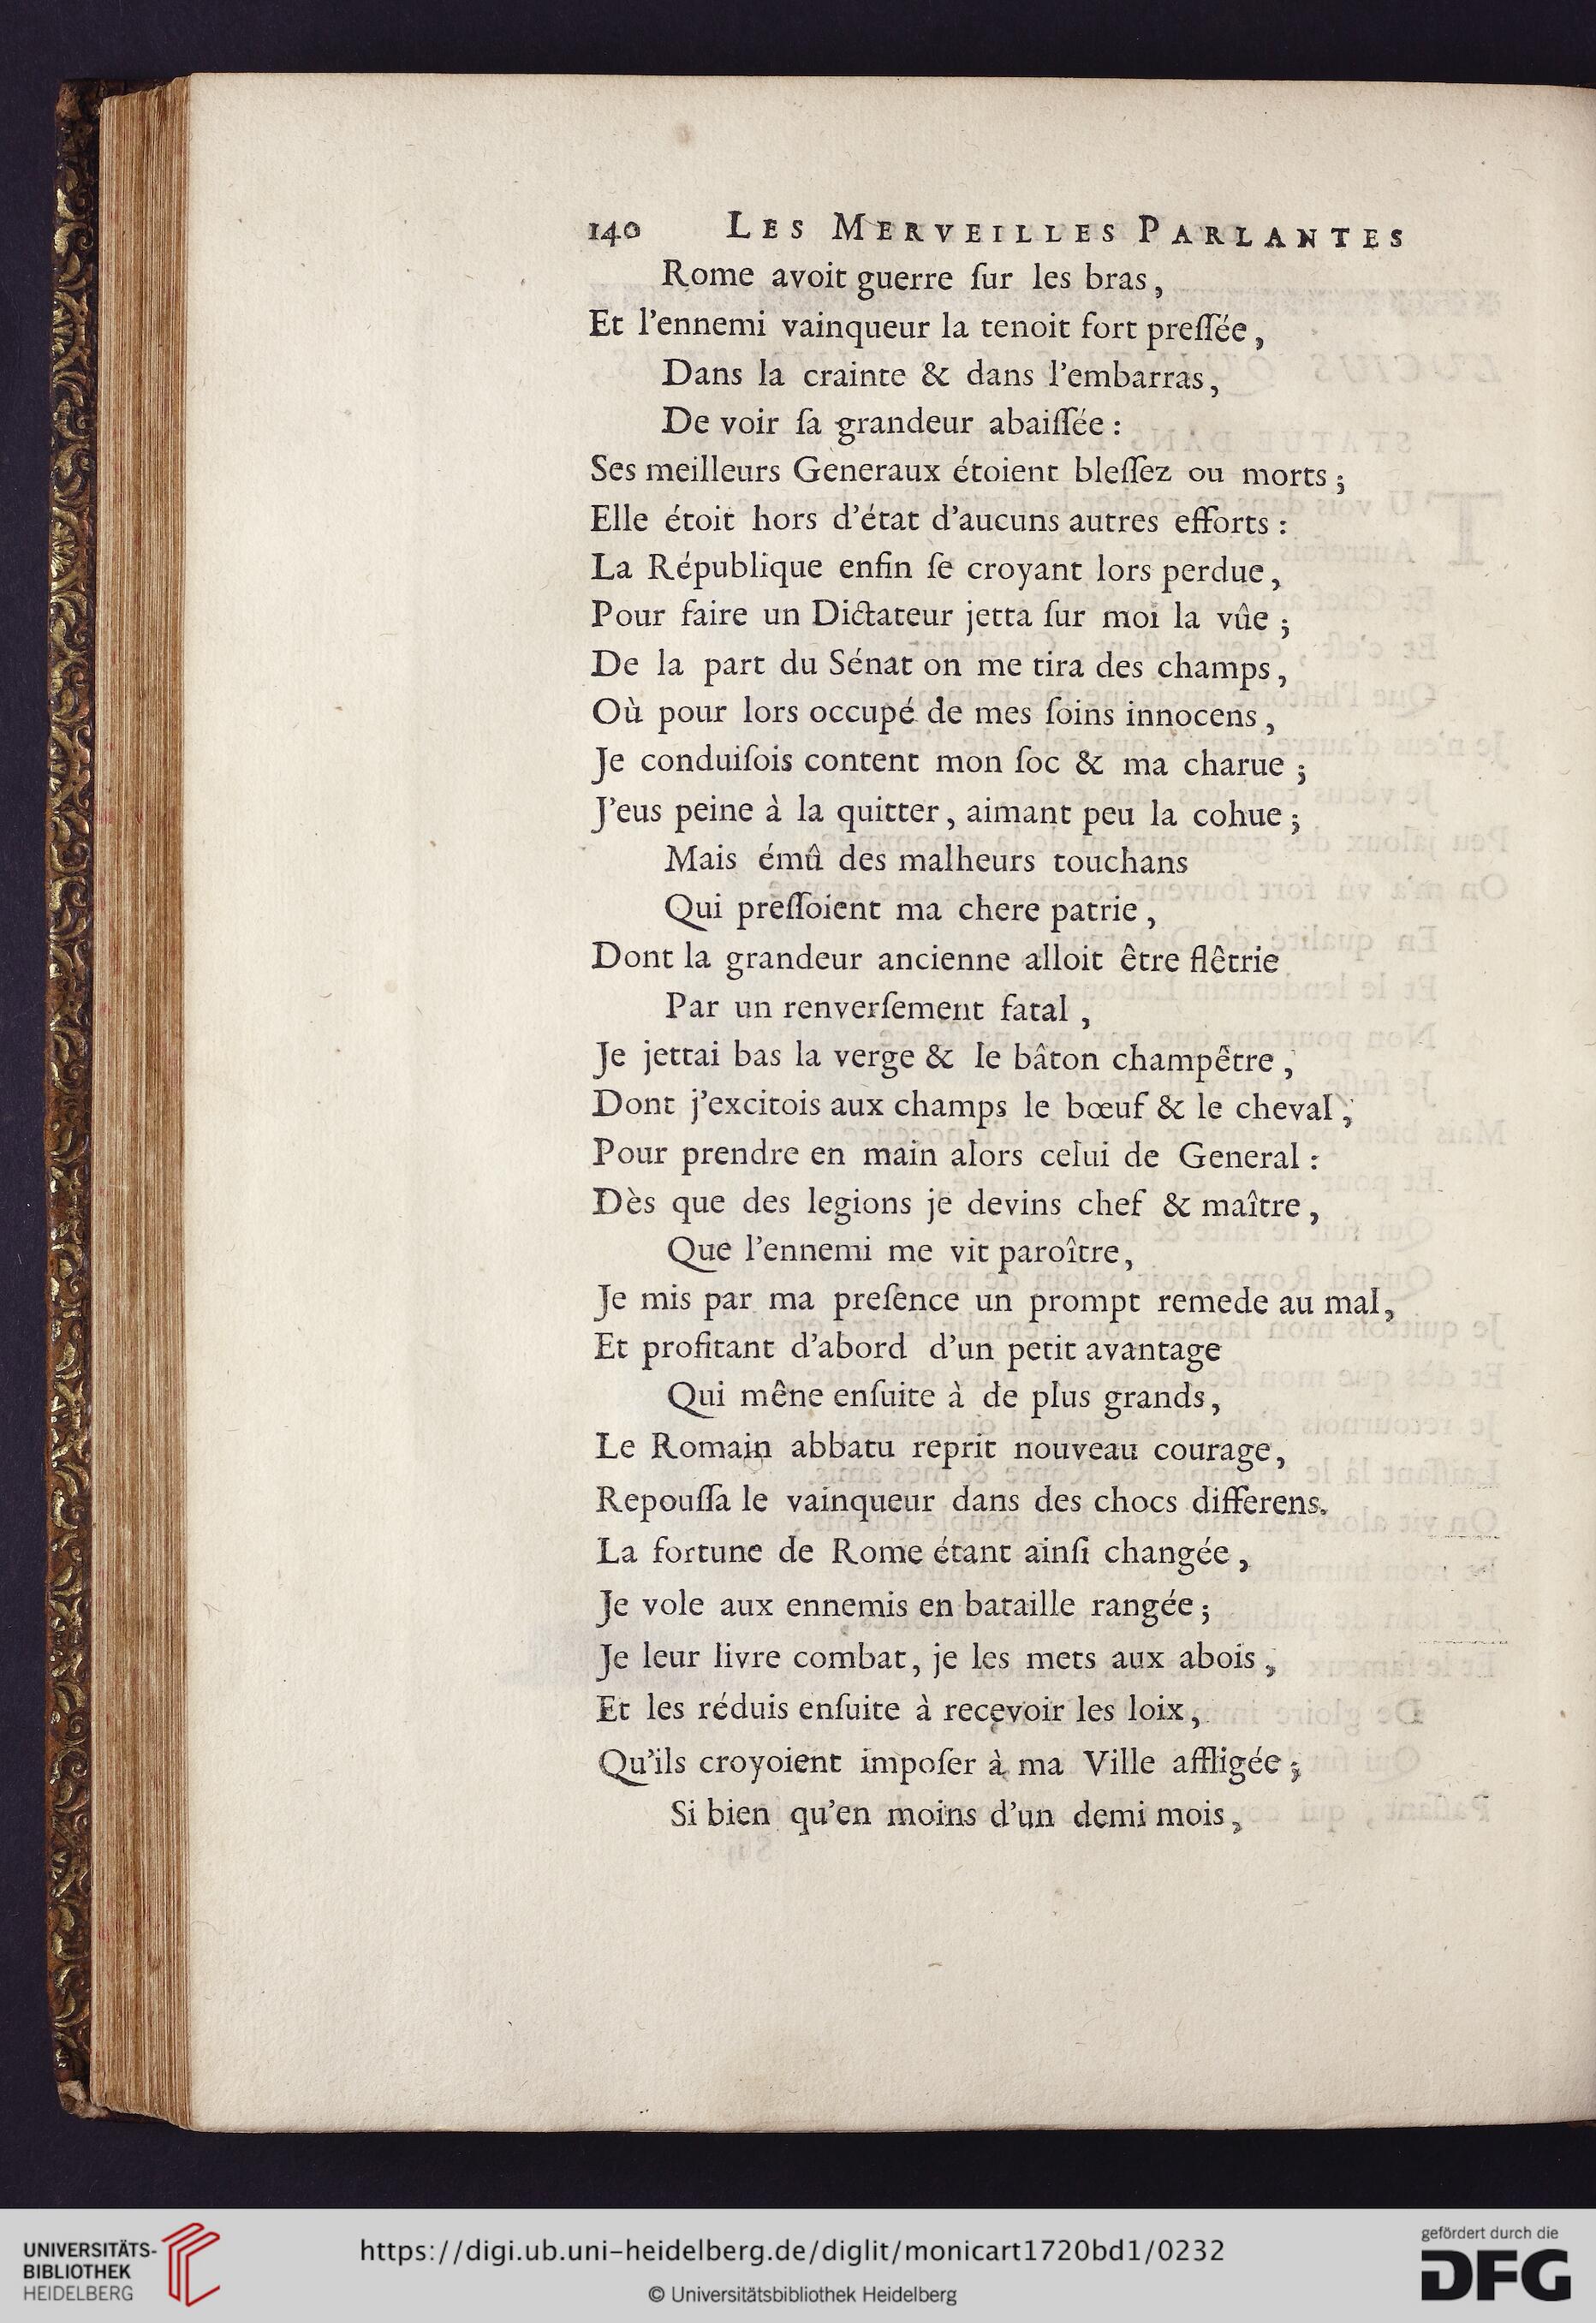 140 LES MERVEILLES PARLANTES
Rome avoit guerre ſur les bras,
Et l'ennemi vainqueur la tenoit fort preſſée,
Dans la crainte & dans l'embarras,
De voir ſa grandeur abaiſſée :
Ses meilleurs Generaux étoient bleſſez ou morts ;
Elle étoit hors d'état d'aucuns autres efforts :
La République enfin ſe croyant lors perdue,
Pour faire un Dictateur jetta ſur moi la vûe ;
De la part du Sénat on me tira des champs,
Où pour lors occupé de mes ſoins innocens,
Je conduiſois content mon ſoc & ma charue ;
J'eus peine à la quitter, aimant peu la cohue ;
Mais émû des malheurs touchans
Qui preſſoient ma chere patrie,
Dont la grandeur ancienne alloit être flêtrie
Par un renverſement fatal,
Je jettai bas la verge & le bâton champêtre,
Dont j'excitois aux champs le bœuf & le cheval,
Pour prendre en main alors celui de General :
Dès que des legions je devins chef & maître,
Que l'ennemi me vit paroître,
Je mis par ma preſence un prompt remede au mal,
Et profitant d'abord d'un petit avantage
Qui mêne enſuite à de plus grands,
Le Romain abbatu reprit nouveau courage,
Repouſſa le vainqueur dans des chocs differens.
La fortune de Rome étant ainſi changée,
Je vole aux ennemis en bataille rangée ;
Je leur livre combat, je les mets aux abois,
Et les réduis enſuite à recevoir les loix,
Qu'ils croyoient impoſer à ma Ville affligée ;
Si bien qu'en moins d'un demi mois,
UNIVERSITÄTS-
BIBLIOTHEK
HEIDELBERG
https://digi.ub.uni-heidelberg.de/diglit/monicart1720bd1/0232
© Universitätsbibliothek Heidelberg
gefördert durch die
DFG